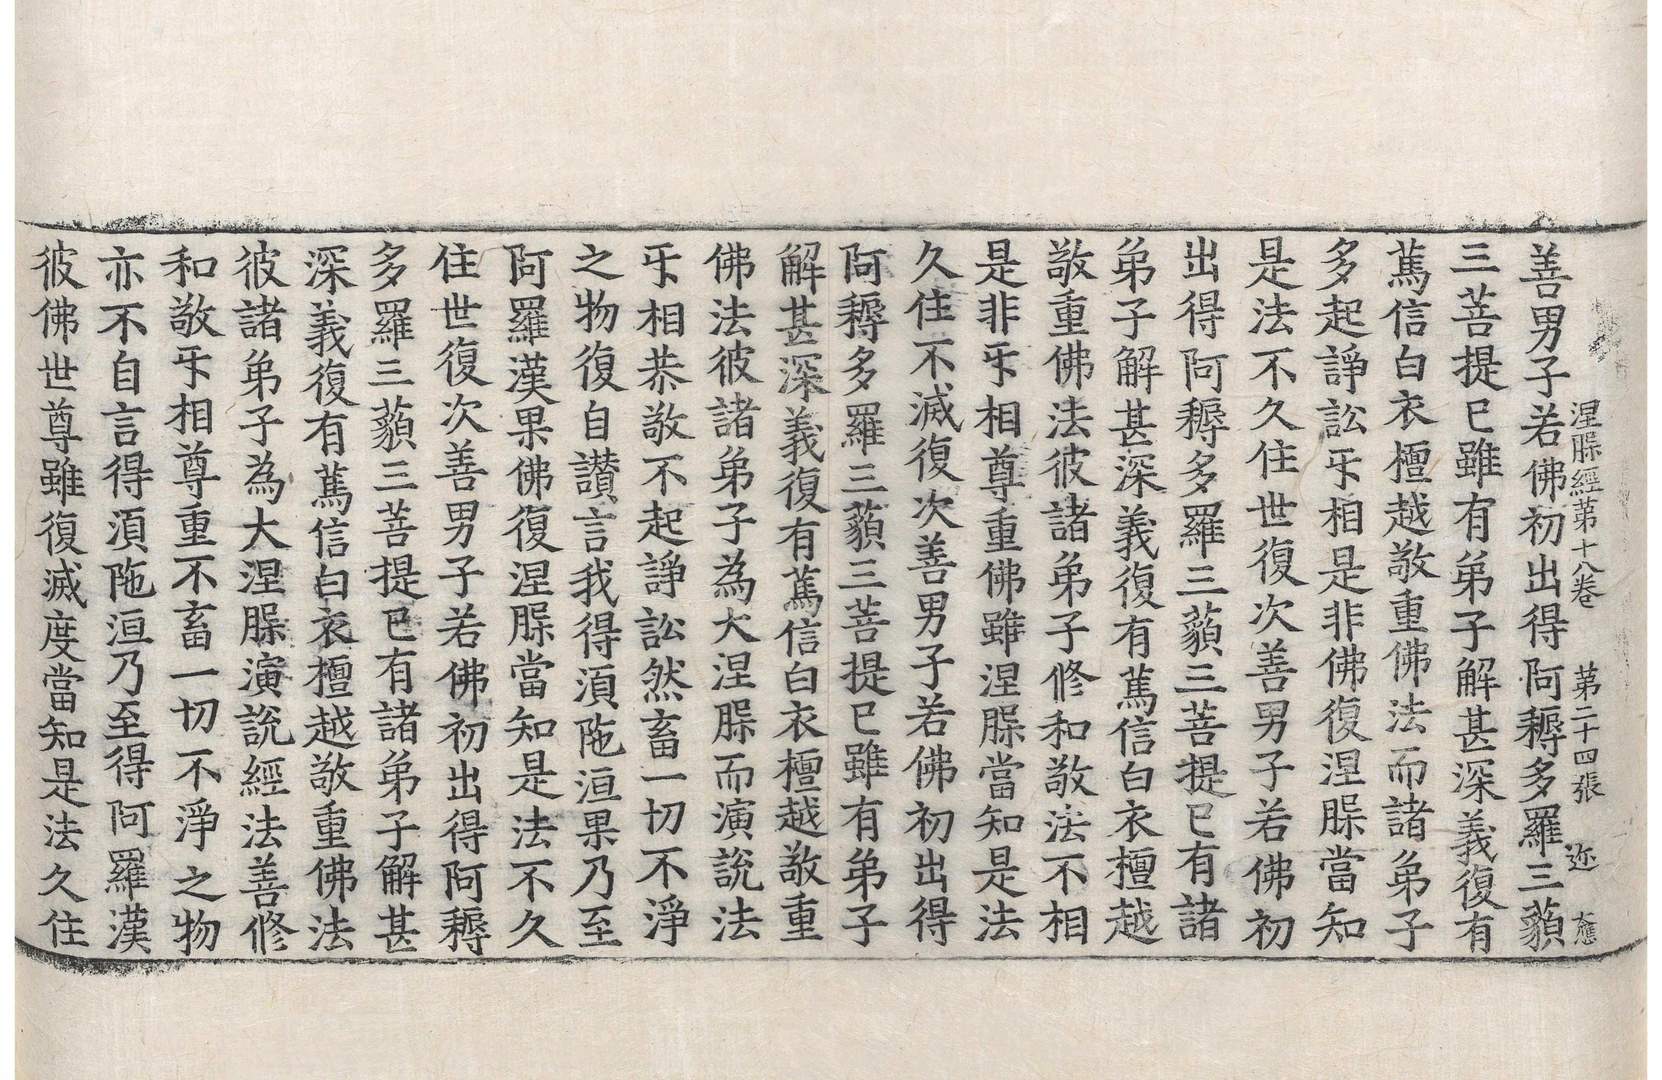 涅槃經第十八卷 第二十四張 迩 應
善男子若佛初出得阿耨多羅三藐
三菩提已雖有弟子解甚深義復有
篤信白衣檀越敬重佛法而諸弟子
多起諍訟㸦相是非佛復涅槃當知
是法不久住世復次善男子若佛初
出得阿耨多羅三藐三菩提已有諸
弟子解甚深義復有篤信白衣檀越
敬重佛法彼諸弟子修和敬法不相
是非㸦相尊重佛雖涅槃當知是法
久住不滅復次善男子若佛初出得
阿耨多羅三藐三菩提已雖有弟子
解甚深義復有篤信白衣檀越敬重
佛法彼諸弟子為大涅槃而演說法
㸦相恭敬不起諍訟然畜一切不淨
之物復自讚言我得湏陁洹果乃至
阿羅漢果佛復涅槃當知是法不久
住世復次善男子若佛初出得阿耨
多羅三藐三菩提已有諸弟子解甚
深義復有篤信白衣檀越敬重佛法
彼諸弟子為大涅槃演說經法善修
和敬㸦相尊重不畜一切不淨之物
亦不自言得湏陁洹乃至得阿羅漢
彼佛世尊雖復滅度當知是法久住